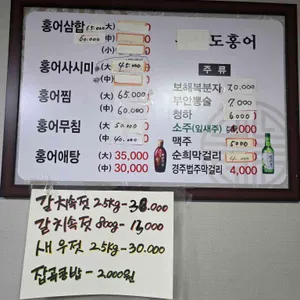 도홍어
홍어삼합 65.000 大)
60.000 中)
(小)
홍어사시미 (大) 45.000
홍어찜 (大) 65.000
(中) 60.000
홍어무침 (大) 50.000
(中) 40.000
홍어애탕 (大) 35,000
(中) 30,000
주 류
보해복분자
부안뽕술 7.000
청하 6000
소주(잎새주)
맥주 5000
순희막걸리 4.000
경주법주막걸리 4,000
갈치속젓 2.5kg-38.000
갈치속젓 800g-13,000
새우젓 2.5kg-30.000
잡곡공밥-2.000원